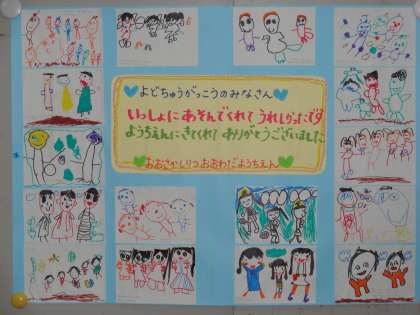 よどちゅうがっこうのみなさん
いっしょに あそんでくれて うれしかったです
ようちえんに きてくれて ありがとうございました
おおさかしりつ おおわだようちえん